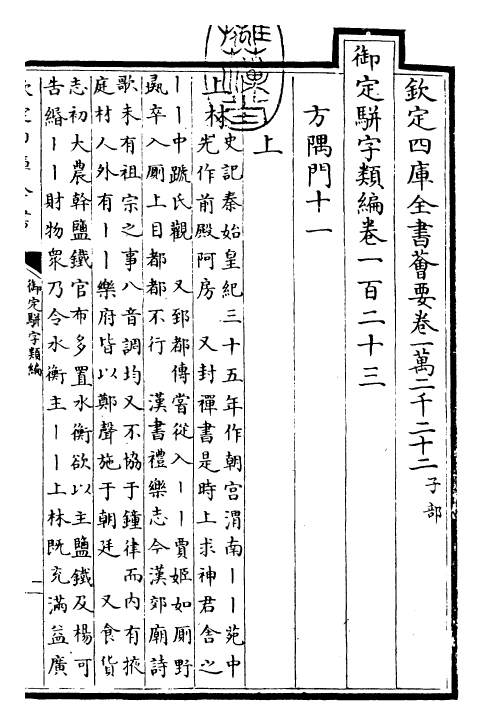 欽定四庫全書薈要卷一萬二千二十二子部
御定駢字類編卷一百二十三
方隅門十一
上
上林史記秦始皇紀三十五年作朝宫渭南丨丨苑中
先作前殿阿房　又封禪書是時上求神君舍之
丨丨中蹏氏觀　又郅都傳嘗從入丨丨賈姬如厠野
彘卒入厠上目都都不行　漢書禮樂志今漢郊廟詩
歌未有祖宗之事八音調均又不協于鐘律而内有掖
庭材人外有丨丨樂府皆以鄭聲施于朝廷　又食貨
志初大農幹鹽鐵官布多置水衡欲以主鹽鐵及楊可
告緡丨丨財物衆乃令水衡主丨丨上林既充滿益廣
御定駢字類編
一